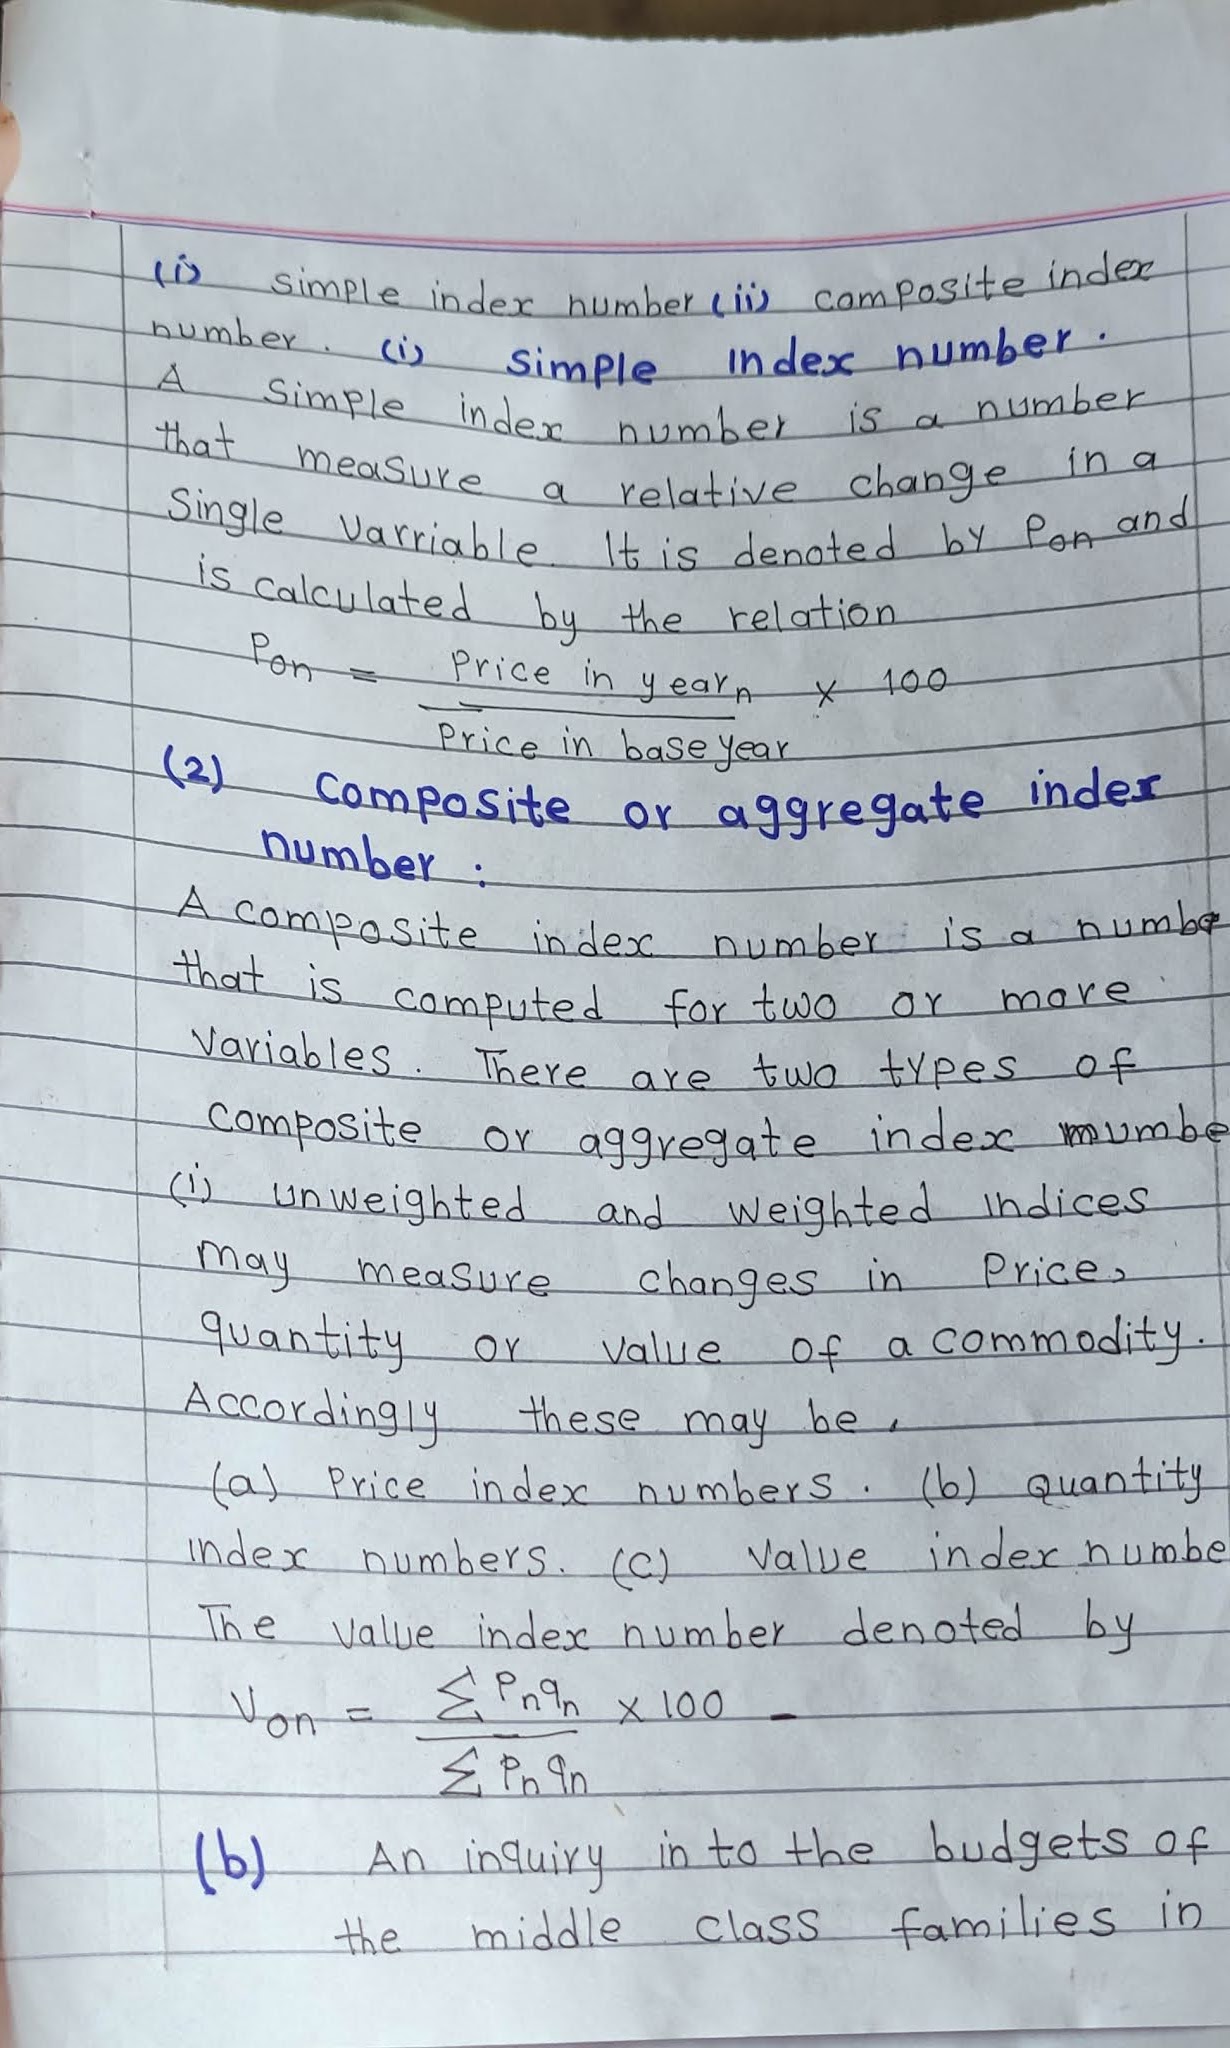 (i) simple index number (ii) composite index
number. (i) Simple Index number.
A Simple index number is a number
that measure a relative change in a
Single Varriable. It is denoted by Pon and
is calculated by the relation
Pon = Price in year n × 100
Price in base year
(2) Composite or aggregate index
number:
A composite index number is a numbe
that is computed for two or more
Variables. There are two types of
composite or aggregate index mumbe
(i) unweighted and weighted indices
may measure changes in Price,
quantity or value of a commodity.
Accordingly these may be,
(a) Price index numbers. (b) Quantity
index numbers. (c) Value index numbe
The value index number denoted by
Von = Σ Pnqn × 100
Σ Pnqn
(b) An inquiry in to the budgets of
the middle class families in